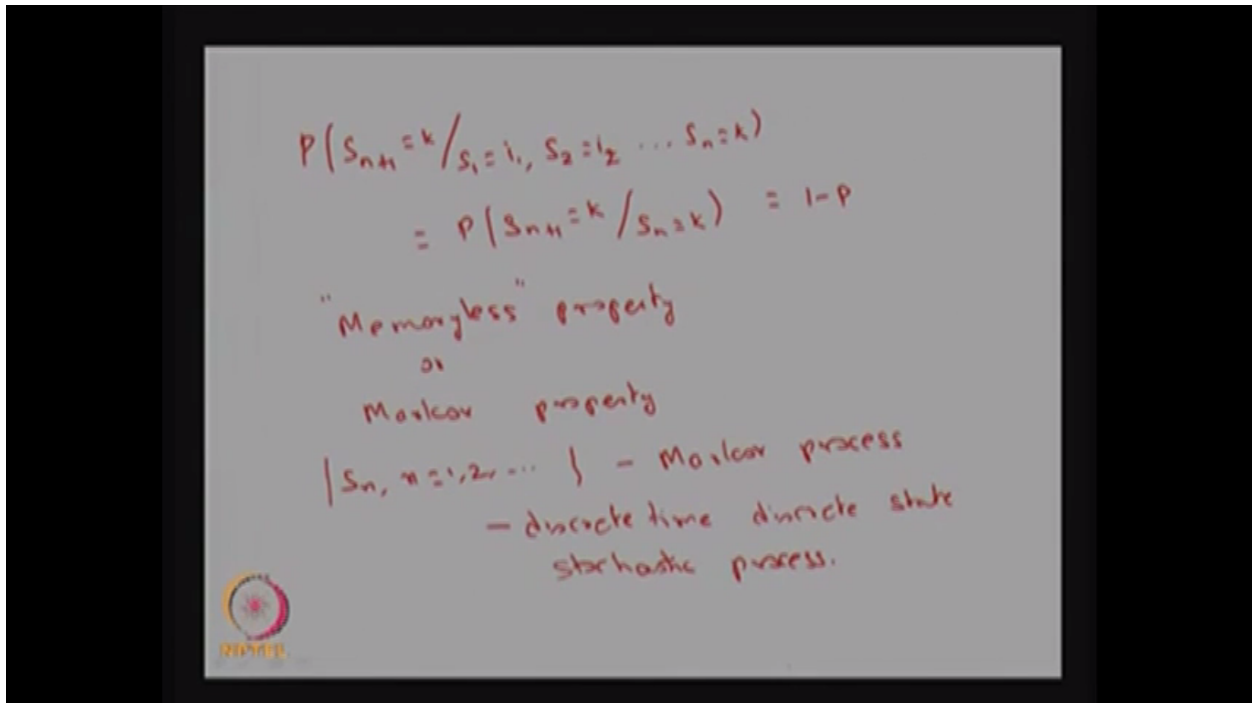 P(Sn+1 = k / S1 = i1, S2 = i2 ... Sn = k)
= P(Sn+1 = k / Sn = k) = 1-P
"Memoryless" property
or
Markov property
{Sn, n = 1, 2, ... } - Markov process
- discrete time discrete state
stochastic process.
NPTEL